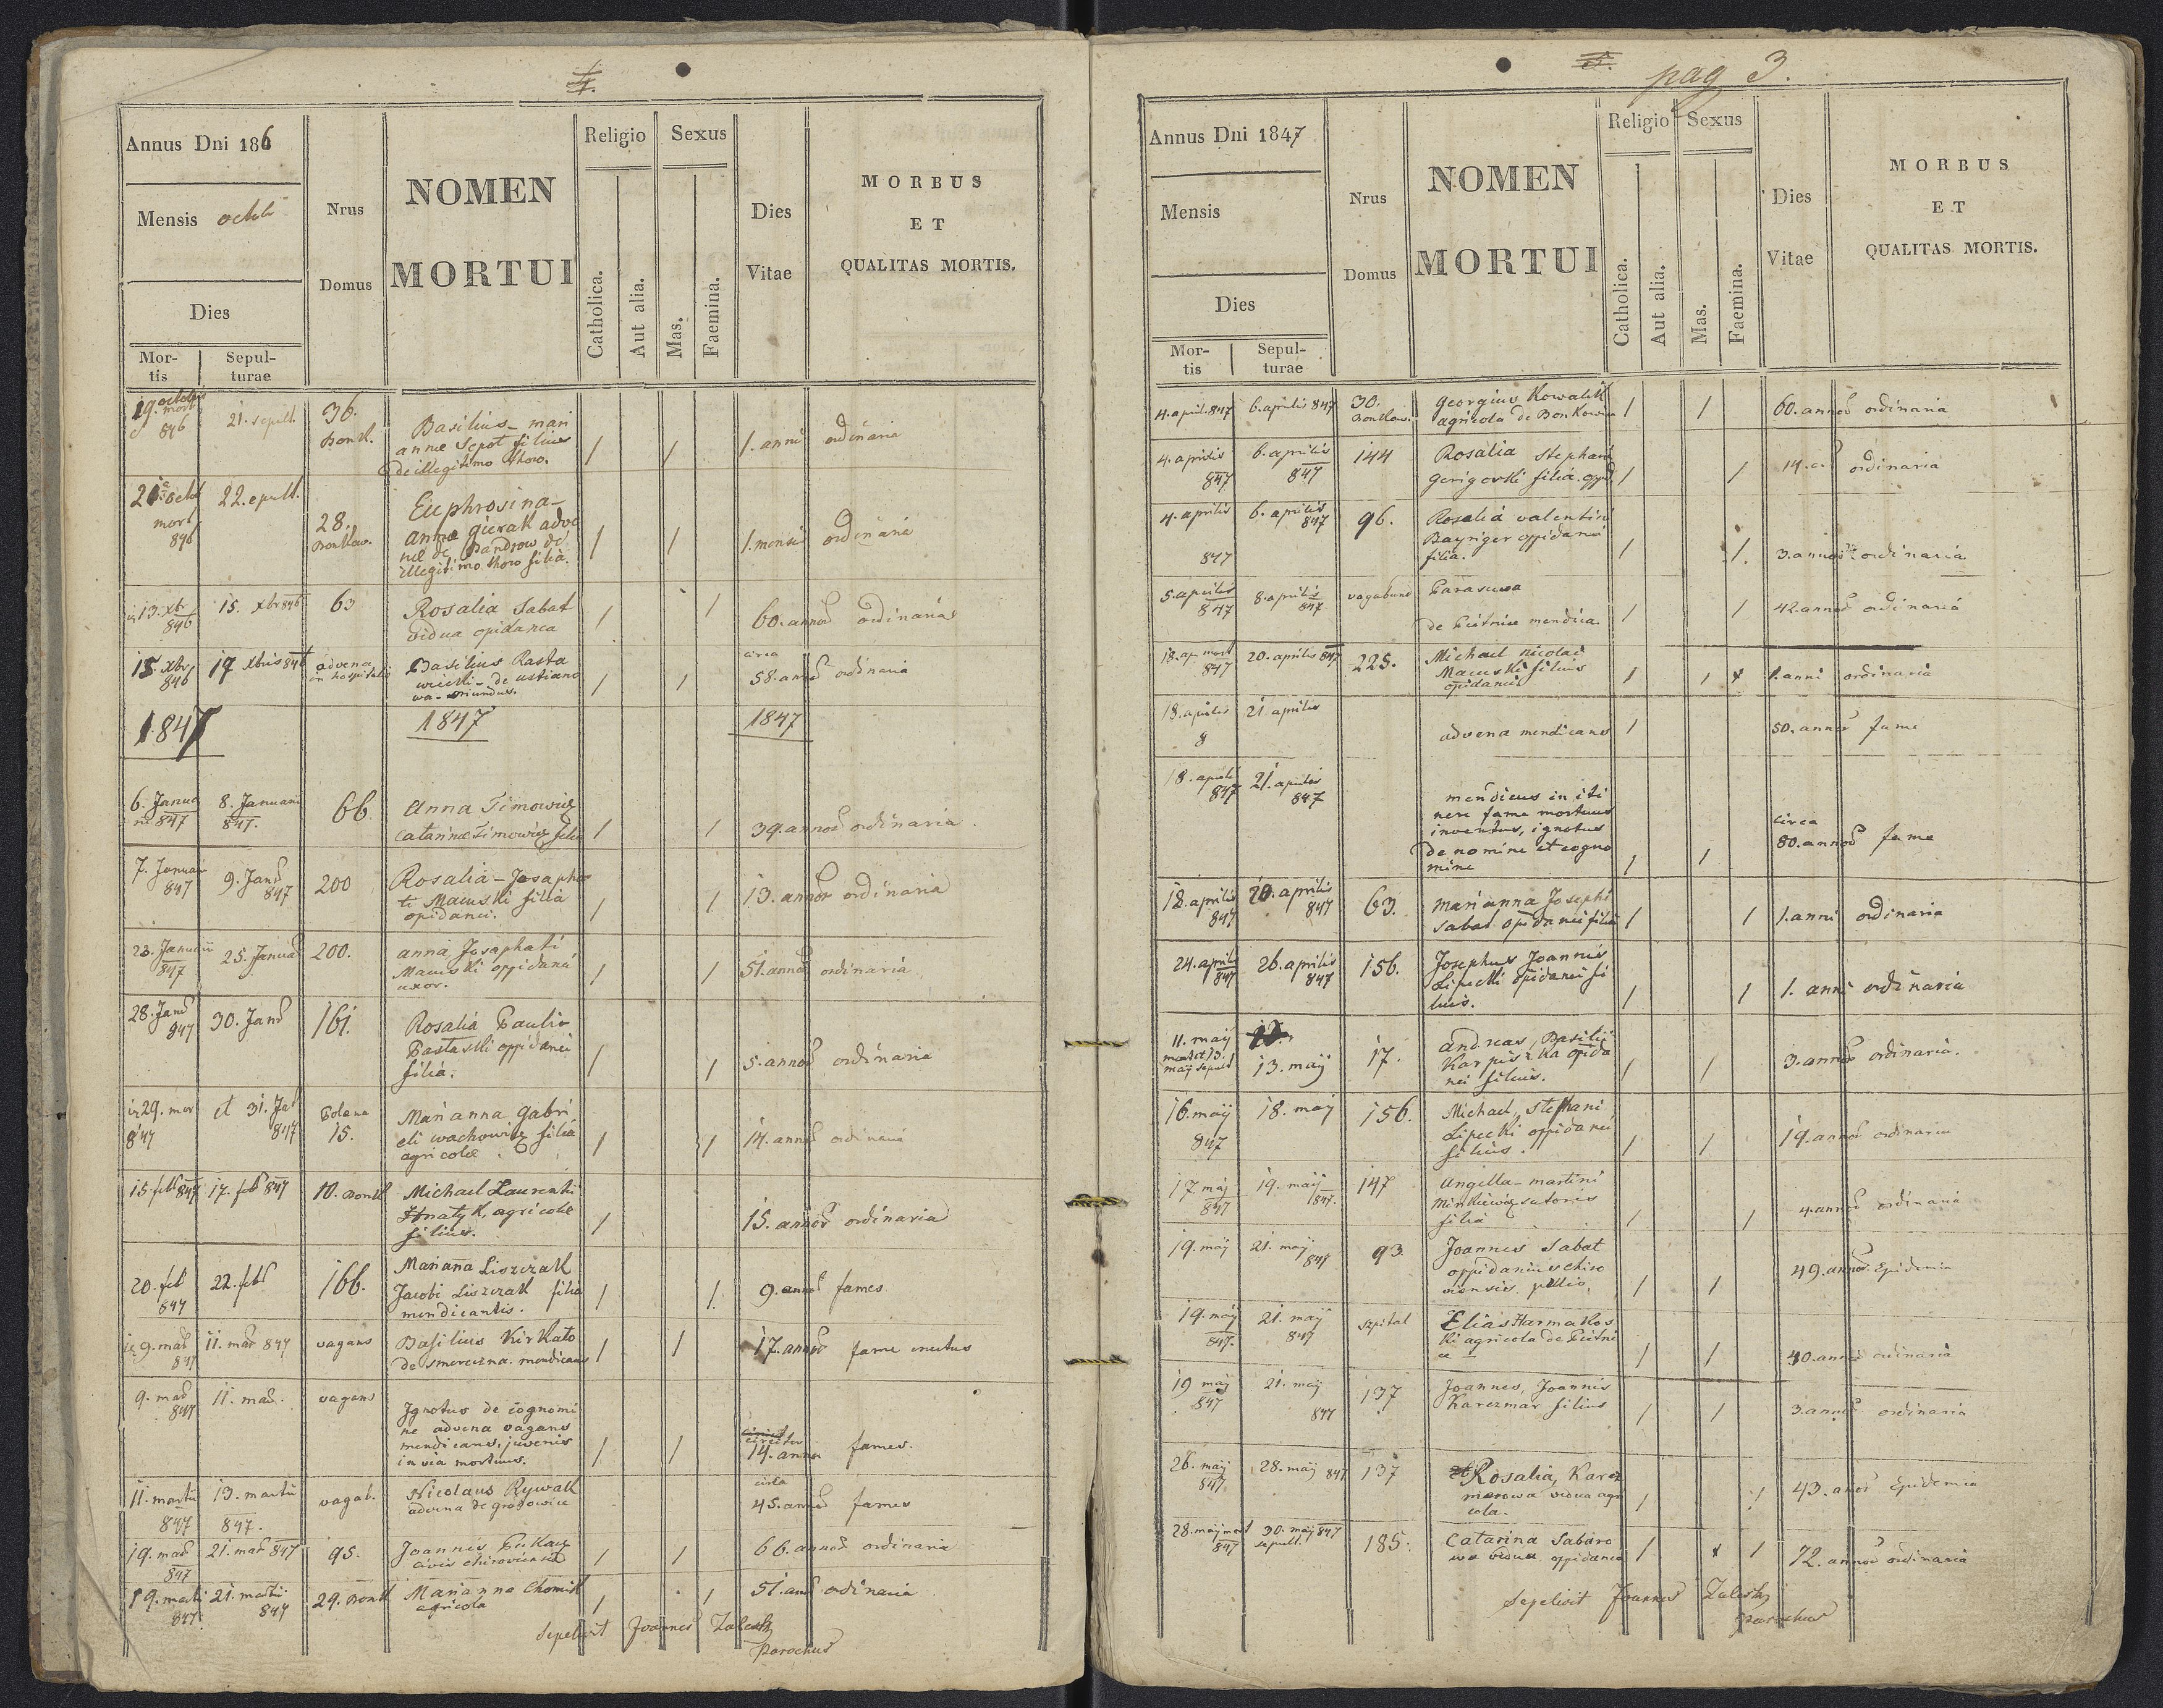 4.
Annus Dni 186
Mensis octb
Dies
Mortis
Sepulturae
Nrus Domus
NOMEN MORTUI
Religio
Catholica.
Aut alia.
Sexus
Mas.
Faemina.
Dies Vitae
MORBUS
ET
QUALITAS MORTIS.
19. octobr mort 846 21. sepult. 36. Bonk. Basilius - mari
annae Sepot filius
de illegitimo thoro. / / 1. anni ordinaria
20 octob mort 846 22. epult. 28. Bonkow. Euphrosina -
annae gierak adve
nae de Bandrow de
illegitimo thoro filia. / / 1. mensis ordinaria
13. xbr 846 15. xbr 846 63 Rosalia Sabat
vidua opidanea / / 60. annor ordinaria
15. xbr 846 17. xbris 846 advena in hospitali Basilius Rasta
wiecki - de ustiano
wa - oriundus. / / circa 58. annor ordinaria
1847 1847 1847
6. Janua
rii 847 8. Januarii 847. 66 Anna Timowicz
Catarinae Timowicz filia / / 39. annor ordinaria.
7. Januar 847 9. Janr 847 200 Rosalia - Josapha
ti Macuski filia
opidanei. / / 13. annor ordinaria
23. Januarii 847 25. Januar 200. anna Josaphati
Macuski oppidanei
uxor. / / 51. annor ordinaria
28. Janr 847 30. Janr 161. Rosalia Pauli
Pastaski oppidanei
filia. / / 5. annor ordinaria
29. mor 847 et 31. Jan 847 Polana 15. Marianna gabri
eli wachowicz filia
agricolae / / 14. annor ordinaria
15. febr 847 17. feb 847 10. Bonk Michael Laurenti
Hnatyk, agricolae
filius. / 15. annor ordinaria
20. feb 847 22. feb 166. Mariana Liszczak
Jacobi Liszczak filia
mendicantis. / / 9. annor fames
9. mar 847 11. mar 847 vagans Basilius Kirkato
de smereczna mendicans / / 17. annor fame enectus
9. mar 847 11. mar. vagans Ignotus de cognomi
ne advena vagans
mendicans, juvenis
in via mortuus. / / circiter 14. annor fames.
11. martii 847 13. martii 847. vagab. Nicolaus Rywak
advena de grodowice circa 45. annor fames
19. mar 847 21. mar 847 95. Joannes Pukacz
civis chiroviensis / / 66. annor ordinaria
19. marti 847. 21. martii 847 29. Bonk Marianna Chomik
agricola / / 51. annor ordinaria
Sepelivit Joannes Zaleski
Parochus
5. pag 3.
Annus Dni 1847
Mensis
Dies
Mortis
Sepulturae
Nrus Domus
NOMEN MORTUI
Religio
Catholica.
Aut alia.
Sexus
Mas.
Faemina.
Dies Vitae
MORBUS
ET
QUALITAS MORTIS.
4. april. 847 6. aprilis 847 30. Bonkow. Georgius Kowalik
agricola de Bonkowa / / 60. annor ordinaria
4. aprilis 847 6. aprilis 847 144 Rosalia Stephani
gerigorski filia. oppd. / / 14. ordinaria
4. aprilis 847 6. aprilis 847 96. Rosalia valentini
Bayriger oppidanei
filia. / /. 3. annor ordinaria
5. aprilis 847 8. aprilis 847 vagabund Parasceva
de Piétnice mendica / / 42. annor ordinaria
18. ap mort 847 20. aprilis 847 225. Michael nicolai
Macuski filius
opidanei / / 1. anni ordinaria
18. aprilis 8 21 aprilis advena mendicans / 50. annor fame
18. april 847 21. aprilis 847 mendicus in iti
nere fame mortuus
inventus, ignotus
de nomine et cogno
mine / / circa 80. annor fame
18. aprilis 847 20. aprilis 847 63. marianna Josephi
Sabat opidanei filia / / 1. anni ordinaria
24. aprilis 847 26. aprilis 847 156. Josephus Joannis
Lipecki opidanei fi
lius. / / 1. anni ordinaria
11. maij 13. maij 17. andreas, Basilii
Karpiszka opida
nei filius. / / 3. annor ordinaria.
16. maij 847 18. maij 156. Michael, Stephani
Lipecki oppidanei
filius. / / 19. annor ordinaria
17. maj 847 19. maij 847. 147 Angella - martini
Minkiewicz sutoris
filia / / 4. annor ordinaria
19. maij 21. maij 847 93. Joannes Sabat
oppidaneus chiro
viensis. pellio. / / 49. annor. Epidemia
19. maij 847. 21. maij 847 szpital Elias Harmakos
ki agricola de Piétni
ce / / 40. annor ordinaria
19 maij 847 21. maij 847 137 Joannes, Joannis
Karczmar filius / / 3. annor ordinaria
26. maij 847. 28. maij 847 137 Rosalia, Karcz
marowa vidua agri
cola. / / 43. annor Epidemia
28. maij mort 847 30. maij 847 sepult. 185. Catarina Sabaro
wa vidua oppidanea / / 72. annor ordinaria
Sepelivit Joannes Zaleski
parochus